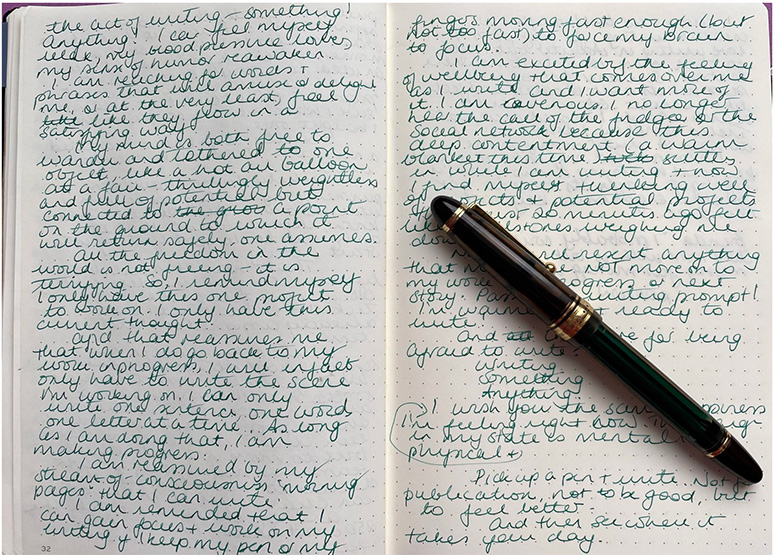 the act of writing – something!
Anything! I can feel myself
relax, my blood pressure lowers
my sense of humor reawaken.
I am reaching for words +
phrases that will amuse & delight
me, or at the very least, feel
like they flow in a
satisfying way.
My mind is both free to
wander and tethered to one
object like a hot air balloon
at a fair – thrillingly weightless
and full of potential but
connected to a point
on the ground to which it
will return safely, one assumes.
All the freedom in the
world is not freeing – it is
terrifying. So, I remind myself
I only have this one project
to work on. I only have this
current thought.
And that reassures me
that when I do go back to my
work in progress, I will in fact
only have to write the scene
I'm working on. I can only
write one sentence, one word
one letter at a time. As long
as I am doing that, I am
making progress.
I am reassured by my
stream-of-consciousness 'morning
pages' that I can write.
I am reminded that I
can gain focus + work on my
writing if I keep my pen & my
32
fingers moving fast enough (but
not too fast) to force my brain
to focus.
I am excited by the feeling
of wellbeing that comes over me
as I write and I want more of
it. I am ravenous. I no longer
hear the call of the fridge or the
social network because this
deep contentment (a warm
blanket this time) settles
in while I am writing + now
I find myself thinking well
of + potential projects
just 20 minutes ago felt
stones weighing me
down
resent anything
that not moreso to
my work progress or next
story. writing prompt!
I'm ready to
write.
And for being
afraid to write?
Writing
Something
Anything.
I wish you the
I'm feeling right now.
in my state is mental
physical +
Pick up a pen + write. Not
publication, not to be good, but
to feel better.
And then see where it
takes your day.